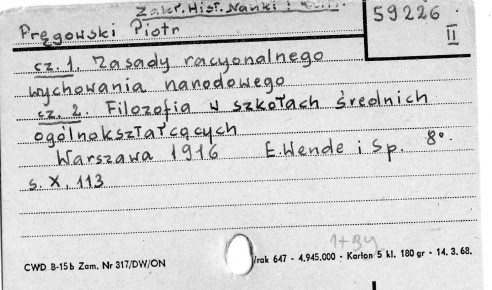 Zakł. Hist. Nauki i
59226
II
Pręgowski Piotr
cz. 1. Zasady racyonalnego
wychowania narodowego
cz. 2. Filozofia w szkołach średnich
ogólnokształcących
Warszawa 1916 E. Wende i Sp. 8°.
s. X, 113
1+34
CWD B-15b Zam. Nr 317/DW/ON /rak 647 - 4.945.000 - Karton 5 kl. 180 gr - 14. 3. 68.